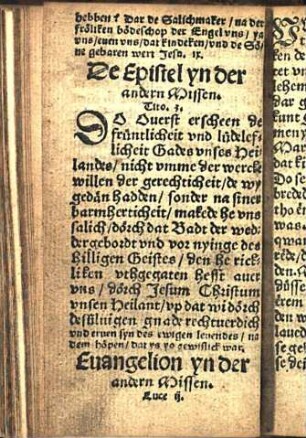 hebben / dar de Salichmaker / na der
fröliken bådeschop der Engel vns / ya
vns / tum vns / dat kindeken / vnd de Så-
ne gebaren wert Jesa. ix.
De Epistel yn der
andern Missen.
Tito. 3.
DO Ouerst erscheen de
früntlicheit vnd lüdelef-
licheit Gades vnses Hei
landes / nicht vmme der wercke
willen der gerechticheit / de wy
gedän hadden / sonder na siner
barmherticheit / makede he vns
salich / dörch dat Badt der wed-
dergebordt vnd vornyinge des
hilligen Geistes / den he rick-
liken vthgegaten hefft auer
vns / dörch Jesum Christum
vnsen Heilant / vp dat wi dörch
desüluigen gnade rechtuerdich
vnd eruen syn des ewigen leuendes / na
dem höpen / dat ys yo gewißlick war.
Euangelion yn der
andern Missen.
Luce ij.